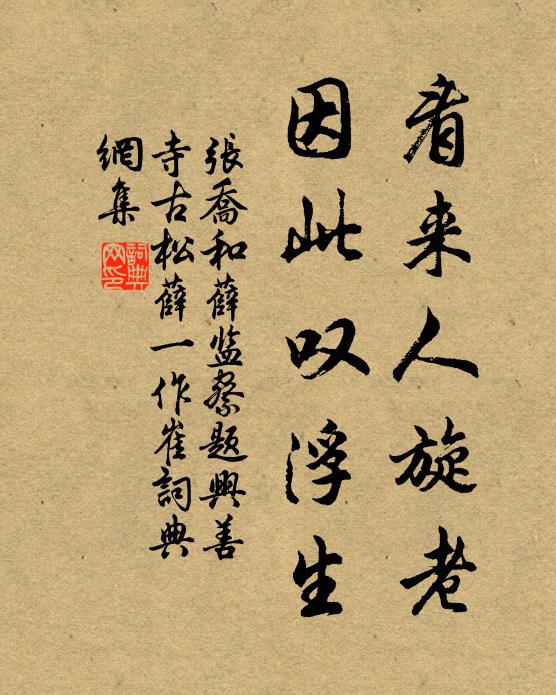 看来人旋老
因此叹浮生
張喬和薛监察題興善
寺古松薛一作崔詞典
網集
詞典
网印